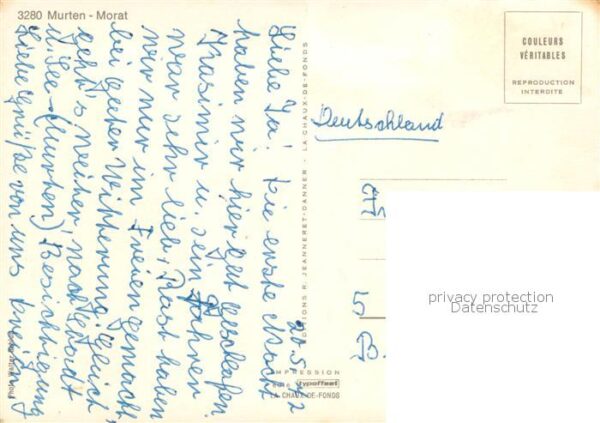 3280 Murten - Morat
20.5.72
Liebe Ia! Die erste Nacht
haben wir hier gut geschlafen.
Kasimir u. sein Fahrer
war sehr lieb, Rast haben
wir nur im Freien gemacht
bei guter Witterung, gleich
geht's weiter nach
u. See (Murten) Besichtigung
Liebe Grüße von uns
EDITIONS R. JEANNERET-DANNER - LA CHAUX-DE-FONDS
IMPRESSION
typoffset
LA CHAUX-DE-FONDS
COULEURS
VÉRITABLES
REPRODUCTION
INTERDITE
Deutschland
5
B.
privacy protection
Datenschutz